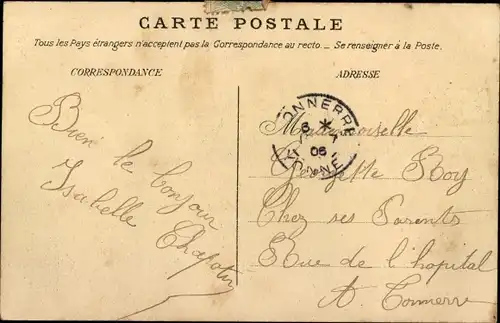 CARTE POSTALE
Tous les Pays étrangers n'acceptent pas la Correspondance au recto. — Se renseigner à la Poste.
CORRESPONDANCE
ADRESSE
Bien le bonjour
Isabelle Chapotin
TONNERRE
6
06
YONNE
Mademoiselle
Georgette Boy
Chez ses Parents
Rue de l'hopital
A. Tonnerre